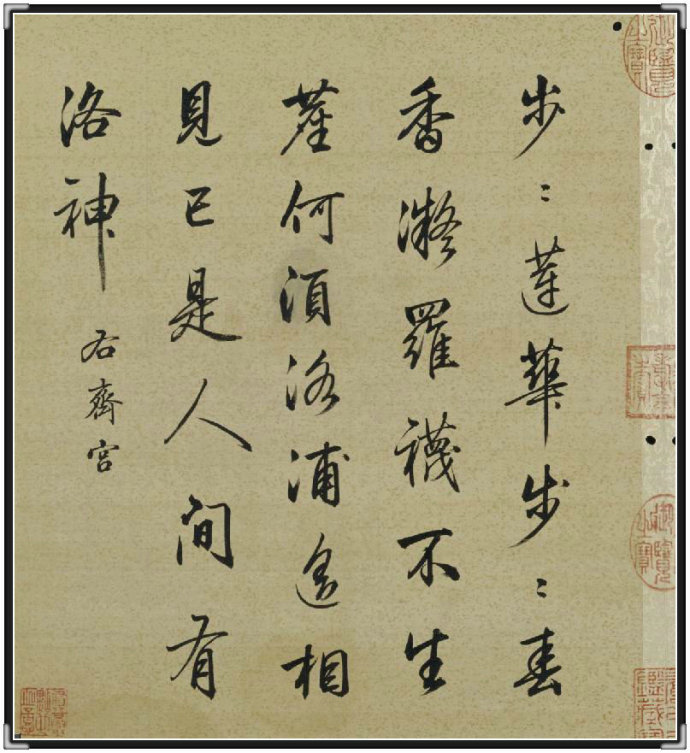 步：蓮華步：春
香凝羅襪不生
塵何須洛浦遙相
見已是人間有
洛神
右齊宮